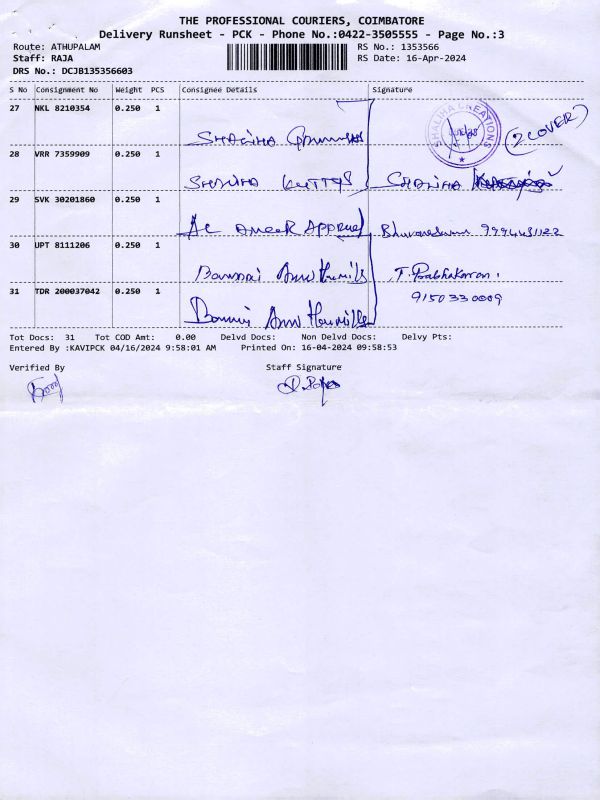 THE PROFESSIONAL COURIERS, COIMBATORE
Delivery Runsheet - PCK - Phone No.:0422-3505555 - Page No.:3
Route: ATHUPALAM
RS No.: 1353566
Staff: RAJA
RS Date: 16-Apr-2024
DRS No.: DCJB135356603
S No Consignment No Weight PCS Consignee Details Signature
27 NKL 8210354 0.250 1
SHALIHA CREATIONS
(2 COVER)
SHALIHA
28 VRR 7359909 0.250 1
SHALIHA KUTTYS SHALIHA
29 SVK 30201860 0.250 1
AL AMEER APPAREL 9994431122
30 UPT 8111206 0.250 1
T. Prabhakaran.
31 TDR 200037042 0.250 1
9150330009
Tot Docs: 31 Tot COD Amt: 0.00 Delvd Docs: Non Delvd Docs: Delvy Pts:
Entered By :KAVIPCK 04/16/2024 9:58:01 AM Printed On: 16-04-2024 09:58:53
Verified By Staff Signature